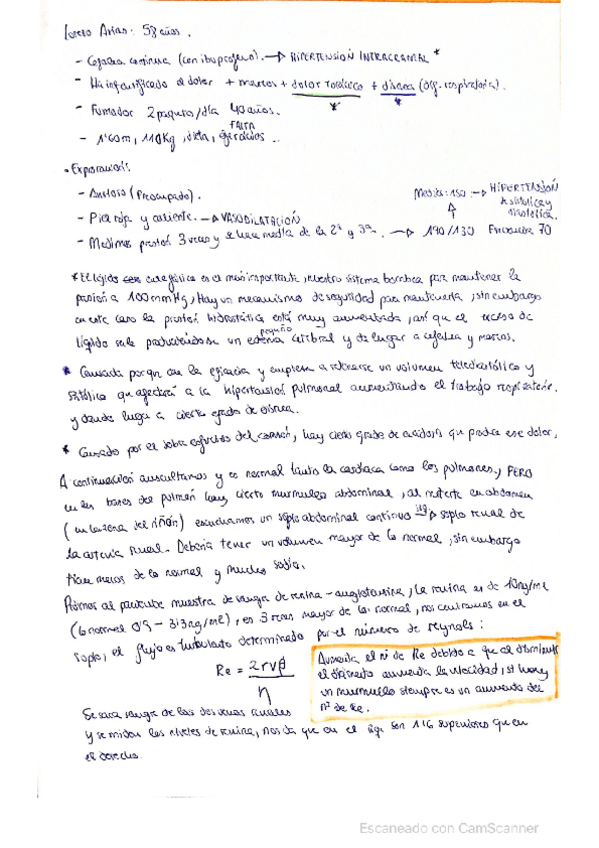 Arias: 58 años.
- Cefalea continua (con ibuprofeno). → HIPERTENSIÓN INTRACRANEAL *
- Ha intensificado el dolor + mareos + dolor torácico + disnea (dif. respiratoria).
* *
- Fumador 2 paquetes/día 40 años.
FALTA
- 1'60m, 110Kg, dieta, ejercicios..
• Exploración:
- Ansioso (Preocupado).
Media: 150 → HIPERTENSIÓN
sistólica y
diastólica.
- Piel roja y caliente. → VASODILATACIÓN
- Medimos presión 3 veces y se hace media de la 2ª y 3ª. → 190/130 Frecuencia 70
* El líquido es el más importante, nuestro sistema bombea para mantener la
presión a 100mmHg, Hay un mecanismo de seguridad para mantenerla, sin embargo
en este caso la presión hidrostática está muy aumentada, así que el exceso de
líquido sale produciéndose un pequeño edema cerebral y da lugar a cefalea y mareos.
* Causada porque cae la eficacia y empieza a retenerse un volumen telediastólico y
sistólico que afectará a la hipertensión pulmonar aumentando el trabajo respiratorio.
y dando lugar a cierto grado de disnea.
* Causado por el sobre esfuerzo del corazón, hay cierto grado de acidosis que produce ese dolor.
A continuación auscultamos y es normal tanto la cardiaca como los pulmones, PERO
en las bases del pulmón hay cierto murmullo abdominal, al meterte en abdomen
(en la zona del riñón) escuchamos un soplo abdominal continuo → soplo renal de
la arteria renal. Debería tener un volumen mayor de lo normal, sin embargo
tiene menos de lo normal y mucho sodio.
Pedimos al paciente muestra de sangre de renina-angiotensina, la renina es de 10ng/ml
(lo normal 0'9 - 3'3ng/ml), es 3 veces mayor de lo normal, nos centramos en el
soplo, el flujo es turbulento determinado por el número de reynols:
Re = 2rvβ
η
Aumenta el nº de Re debido a que al disminuir
el diámetro aumenta la velocidad, si hay
un murmullo siempre es un aumento del
nº de Re.
Se saca sangre de las dos venas renales
y se miden los niveles de renina, nos da que en el son 1'6 superiores que en
el derecho.
Escaneado con CamScanner